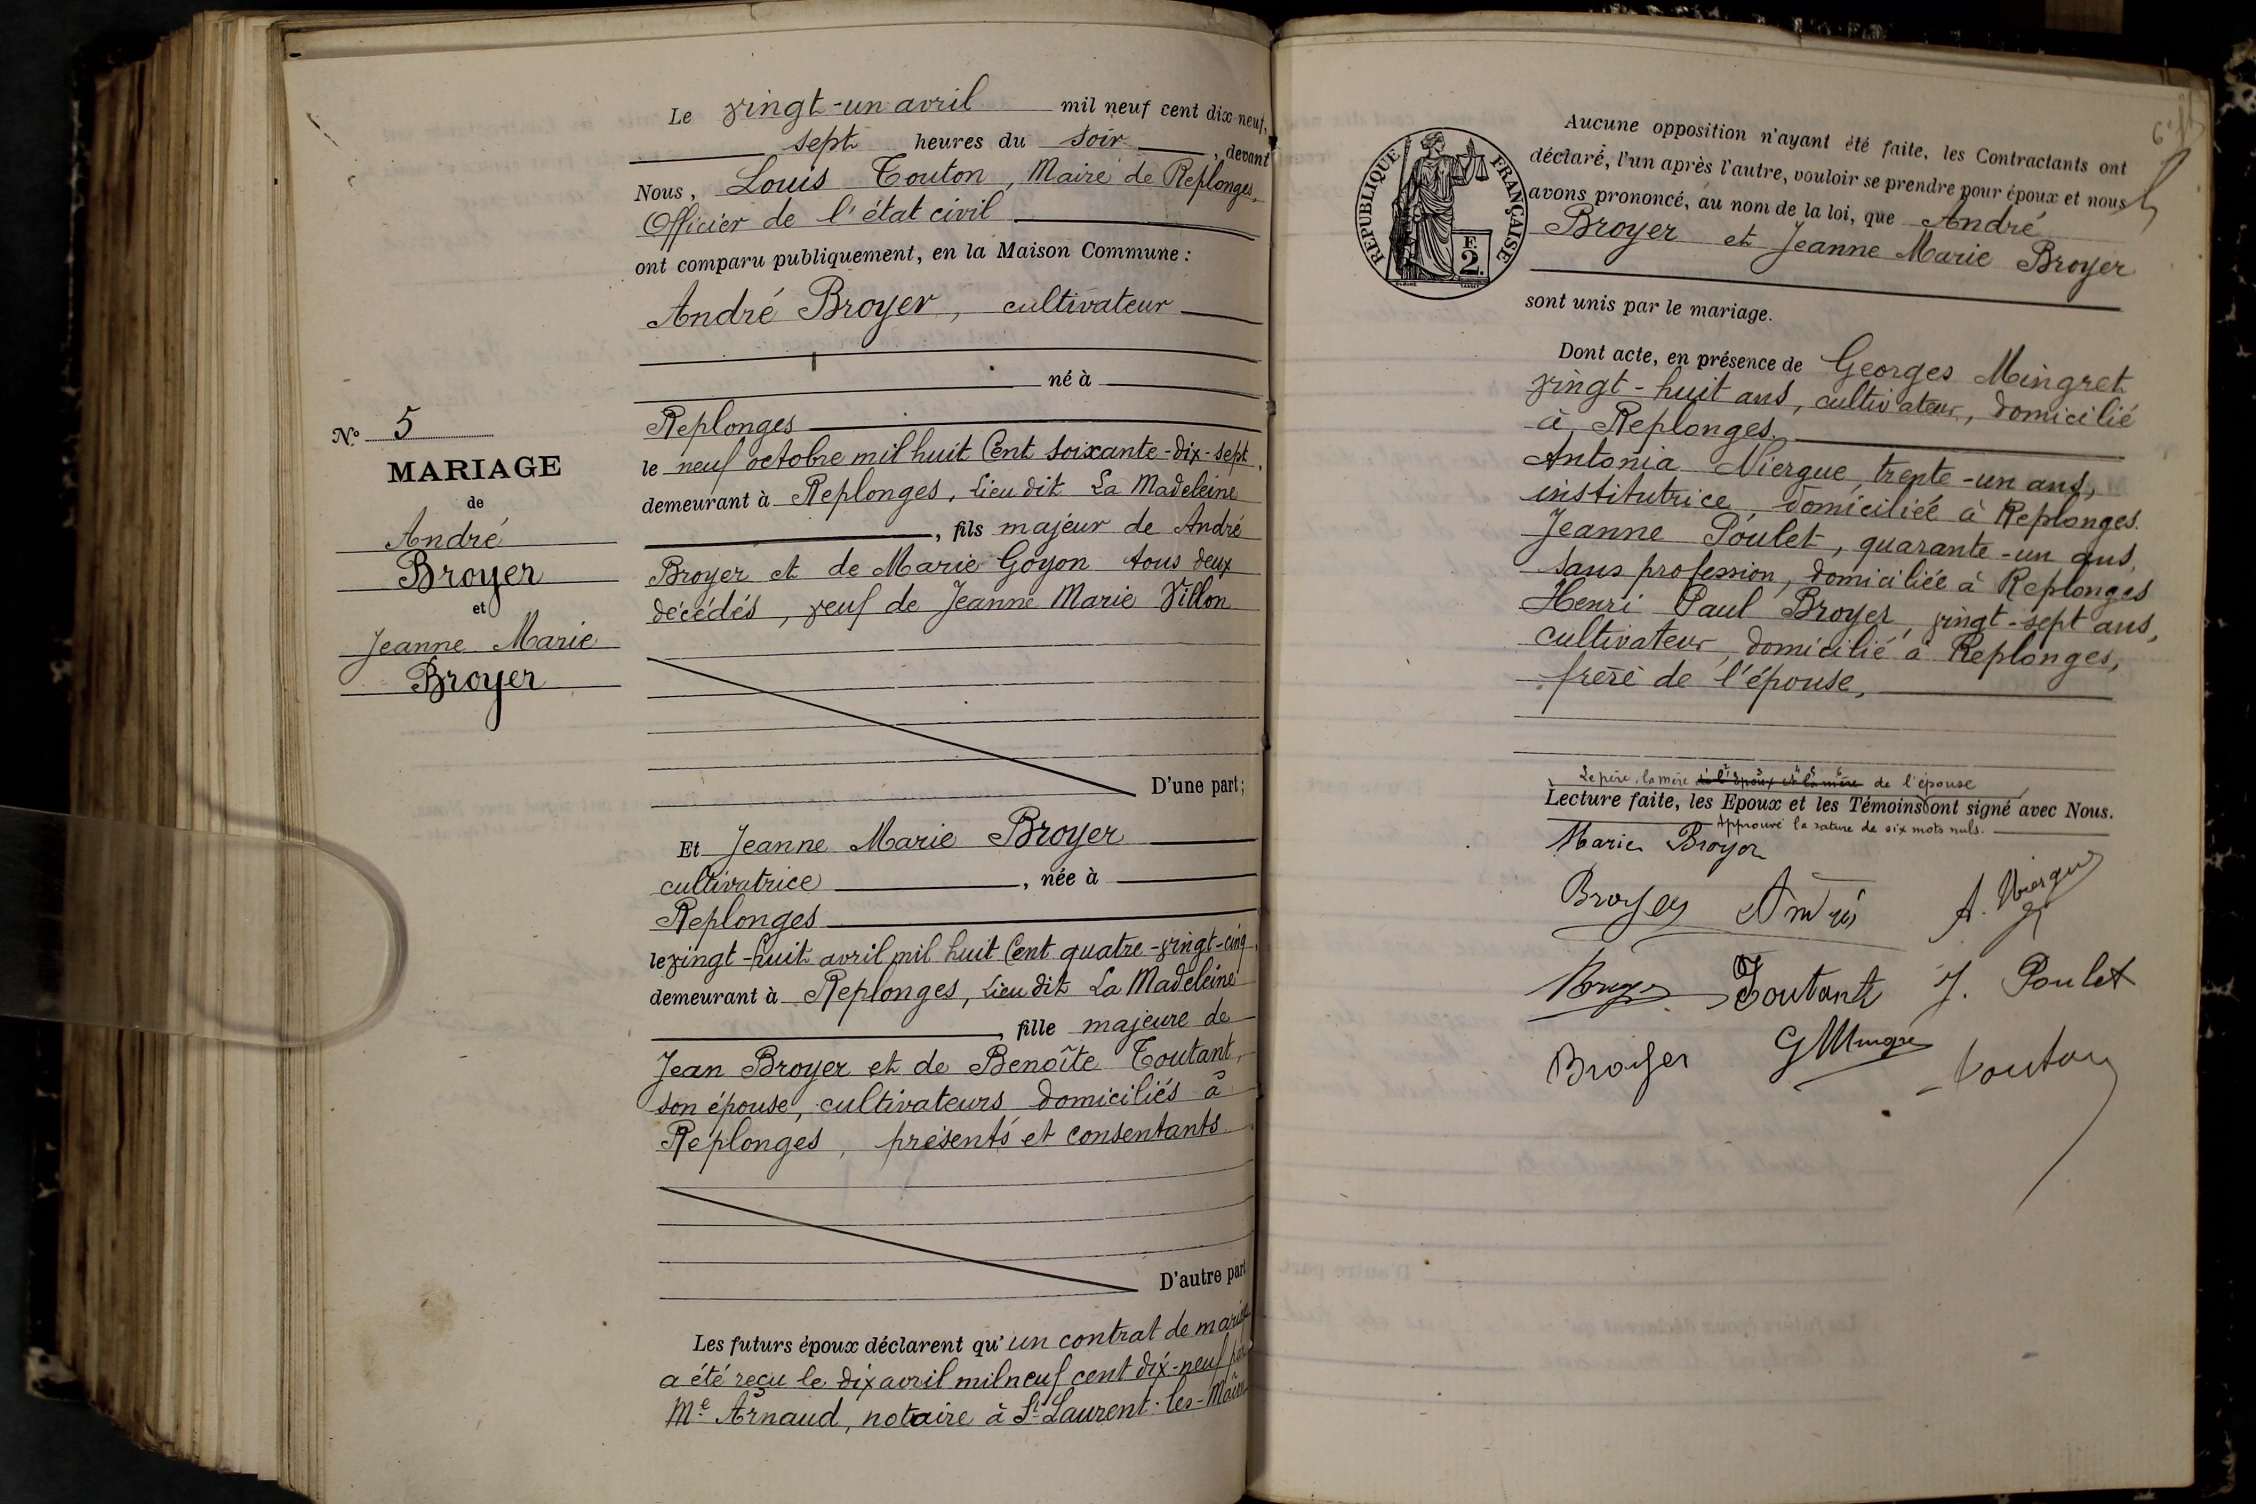 Le vingt-un avril mil neuf cent dix-neuf,
sept heures du soir, devant
Nous, Louis Touton, Maire de Replonges,
Officier de l'état civil
ont comparu publiquement, en la Maison Commune :
André Broyer, cultivateur
né à
Replonges
le neuf octobre mil huit Cent soixante-dix-sept,
demeurant à Replonges, lieu dit La Madeleine
, fils majeur de André
Broyer et de Marie Goyon tous deux
décédés, veuf de Jeanne Marie Villon
D'une part;
N.º 5
MARIAGE
de
André
Broyer
et
Jeanne Marie
Broyer
Et Jeanne Marie Broyer
cultivatrice, née à
Replonges
le vingt-huit avril mil huit Cent quatre-vingt-cinq,
demeurant à Replonges, lieu dit La Madeleine
, fille majeure de
Jean Broyer et de Benoîte Toutant,
son épouse, cultivateurs domiciliés à
Replonges, présents et consentants
D'autre part
Les futurs époux déclarent qu'un contrat de mariage
a été reçu le dix avril mil neuf cent dix-neuf par
Me Arnaud, notaire à St Laurent-les-Mâcon
RÉPUBLIQUE FRANÇAISE
F.
2.
Aucune opposition n'ayant été faite, les Contractants ont
déclaré, l'un après l'autre, vouloir se prendre pour époux et nous
avons prononcé, au nom de la loi, que André
Broyer et Jeanne Marie Broyer
sont unis par le mariage.
Dont acte, en présence de Georges Mingret
vingt-huit ans, cultivateur, domicilié
à Replonges,
Antonia Niergue, trente-un ans,
institutrice, domiciliée à Replonges.
Jeanne Poulet, quarante-un ans,
sans profession, domiciliée à Replonges
Henri Paul Broyer, vingt-sept ans,
cultivateur, domicilié à Replonges,
frère de l'épouse,
Le père, la mère de l'époux et la mère de l'épouse
Lecture faite, les Epoux et les Témoins ont signé avec Nous.
Approuvé la rature de six mots nuls.
Marie Broyer
Broyer André A. Niergue
Broyer Toutant J. Poulet
Broyer G Mingret Touton